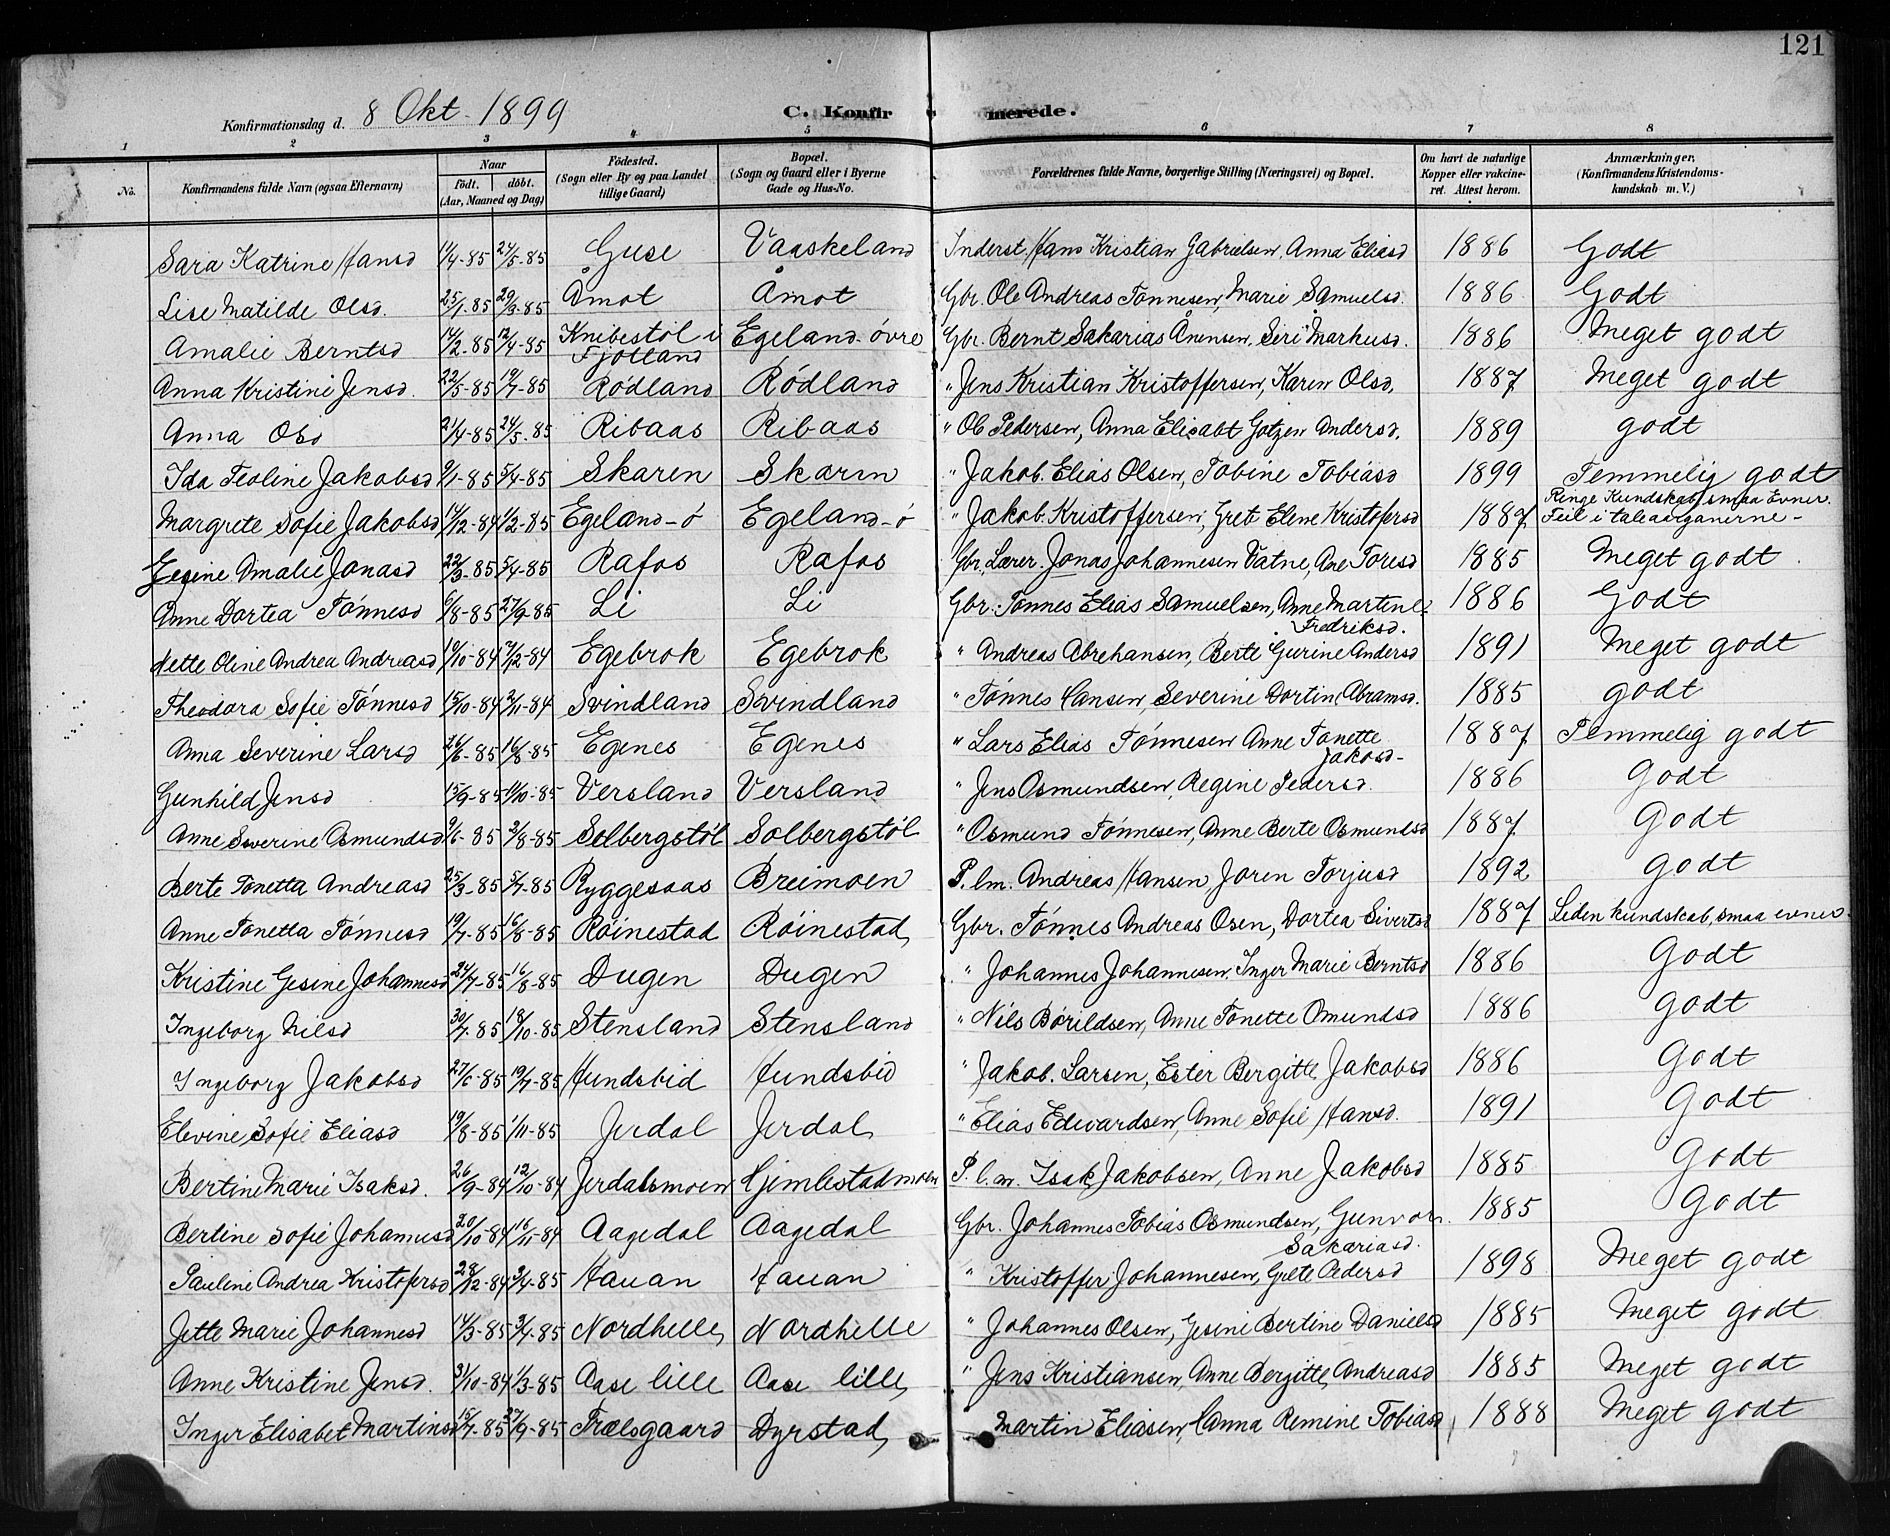 121
Konfirmationsdag d. 8 Okt. 1899
C. Konfirmerede.
1 2 3 4 5 6 7 8
No. Konfirmandens fulde Navn (ogsaa Efternavn) Naar födt. döbt. (Aar, Maaned og Dag) Födested. (Sogn eller By og paa Landet tillige Gaard) Bopæl. (Sogn og Gaard eller i Byerne Gade og Hus-No.) Forældrenes fulde Navne, borgerlige Stilling (Næringsvei) og Bopæl. Om havt de naturlige Kopper eller vakcineret. Attest herom. Anmærkninger. (Konfirmandens Kristendomskundskab m. V.)
Sara Katrine Hansd 11/4-85 24/5-85 Guse Vaaskeland Inderst. Hans Kristian Gabrielsen, Anna Eliasd 1886 Godt
Lise Matilde Olsd. 25/1-85 29/3-85 Åmot Åmot Gbr. Ole Andreas Tønnesen, Marie Samuelsd. 1886 Godt
Amalie Berntsd 14/2-85 12/4-85 Knibestøl i Fjotland Egeland-øvre Gbr. Bernt Sakarias Ånensen, Siri Markusd. 1886 Meget godt
Anna Kristine Jensd. 22/5-85 19/7-85 Rødland Rødland " Jens Kristian Kristoffersen, Karen Olsd, 1887 Meget godt
Anna Olsd 21/4-85 24/5-85 Ribaas Ribaas " Ol Pedersen, Anna Elisabt Gotzen Andersd, 1889 godt
Ida Teoline Jakobsd 9/1-85 5/4-85 Skaren Skaren " Jakob Elias Olsen, Tobine Tobiasd 1899 Temmelig godt
Margrete Sofie Jakobsd 14/12-84 1/2-85 Egeland-ø Egeland-ø " Jakob Kristoffersen, Gret Elene Kristofersd 1887 Ringe Kundskab, smaa Evner. Feil i taleorganerne-
Gesine Amalie Jonasd 22/3-85 5/4-85 Rafos Rafos Gbr, Lærer. Jonas Johannesen Vatne, Ane Toresd 1885 Meget godt
Anne Dortea Tønnesd 6/8-85 27/9-85 Li Li Gbr. Tønnes Elias Samuelsen, Anne Martine Fredriksd. 1886 Godt
Nette Oline Andrea Andreasd 19/10-84 7/12-84 Egebrok Egebrok " Andreas Abrehansen, Berte Gurine Andersd 1891 Meget godt
Theodora Sofie Tønnesd 15/10-84 2/11-84 Svindland Svindland " Tønnes Hansen, Severine Dortin Abramsd. 1885 godt
Anna Severine Larsd 26/6-85 16/8-85 Egenes Egenes " Lars Elias Tønnesen Anne Tonette Jakobsd- 1887 Temmelig godt
Gunhild Jensd 15/9-85 11/10-85 Versland Versland " Jens Osmundsen, Regine Pedersd. 1886 Godt
Anne Severine Osmundsd 9/6-85 2/8-85 Solbergstøl Solbergstøl " Osmund Tønnesen, Anne Berte Osmundsd 1887 Godt
Berte Tonetta Andreasd 25/3-85 5/7-85 Ryggesaas Breimoen P. lm. Andreas Hansen, Joren Torjusd 1892 Godt
Anne Tonetta Tønnesd 19/7-85 16/8-85 Røinestad Røinestad Gbr. Tønnes Andreas Osen, Dortea Sivertsd 1887 Liden kundskab, smaa evner.
Kristine Gesine Johannesd 24/7-85 16/8-85 Dugen Dugen " Johannes Johannesen, Inger Marie Berntsd 1886 Godt
Ingeborg Nilsd 30/7-85 18/10-85 Stensland Stensland " Nils Børildsen, Anne Tonette Omundsd 1886 Godt
Ingeborg Jakobsd 27/6-85 19/7-85 Hundsbid Hundsbid " Jakob Larsen, Ester Bergitte Jakobsd 1886 Godt
Elevine Sofie Eliasd 19/8-85 1/11-85 Jerdal Jerdal " Elias Edvardsen, Anne Sofie Hansd. 1891 Godt
Bertine Marie Isaksd. 26/9-84 12/10-84 Jerdalsmoen Hjemlestadmoen P. l.m. Isak Jakobsen, Anne Jakobsd 1885 Godt
Bertine Sofie Johannesd 20/10-84 16/11-84 Aagedal Aagedal Gbr. Johannes Tobias Osmundsen, Gunvor Sakariasd. 1885 Godt
Pauline Andrea Kristofersd 28/12-84 3/4-85 Hauan Hauan " Kristoffer Johannesen, Grete Pedersd 1898 Meget godt
Jette Marie Johannesd 14/3-85 3/4-85 Nordhelle Nordhelle " Johannes Olsen, Gesine Bertine Danielsd 1885 Meget godt
Anne Kristine Jensd. 31/10-84 1/3-85 Aase lille Aase lille " Jens Kristiansen, Anne Bergitte Andreasd 1885 Meget godt
Inger Elisabet Martinsd 15/7-85 27/9-85 Trælsgaard Dyrstad " Martin Eliasen, Hanna Remine Tobiasd 1888 Meget godt